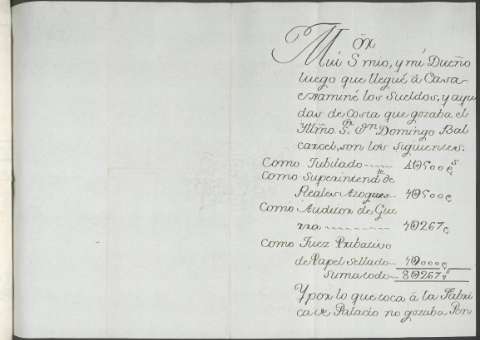 Mui S mio, y mi Dueño
luego que llegué á Casa
examiné los Sueldos, y ayu
das de costa que gozaba el
Illmo Sr. Dn Domingo Bal
carcel, son los siguientes.
Como Jubilado
Como Superintendte de
Reales Azogues
Como Auditor de Gue
rra
Como Juez Pribativo
de Papel Sellado
Suma todo
Y por lo que toca á la Fabri
ca de Palacio no gozaba